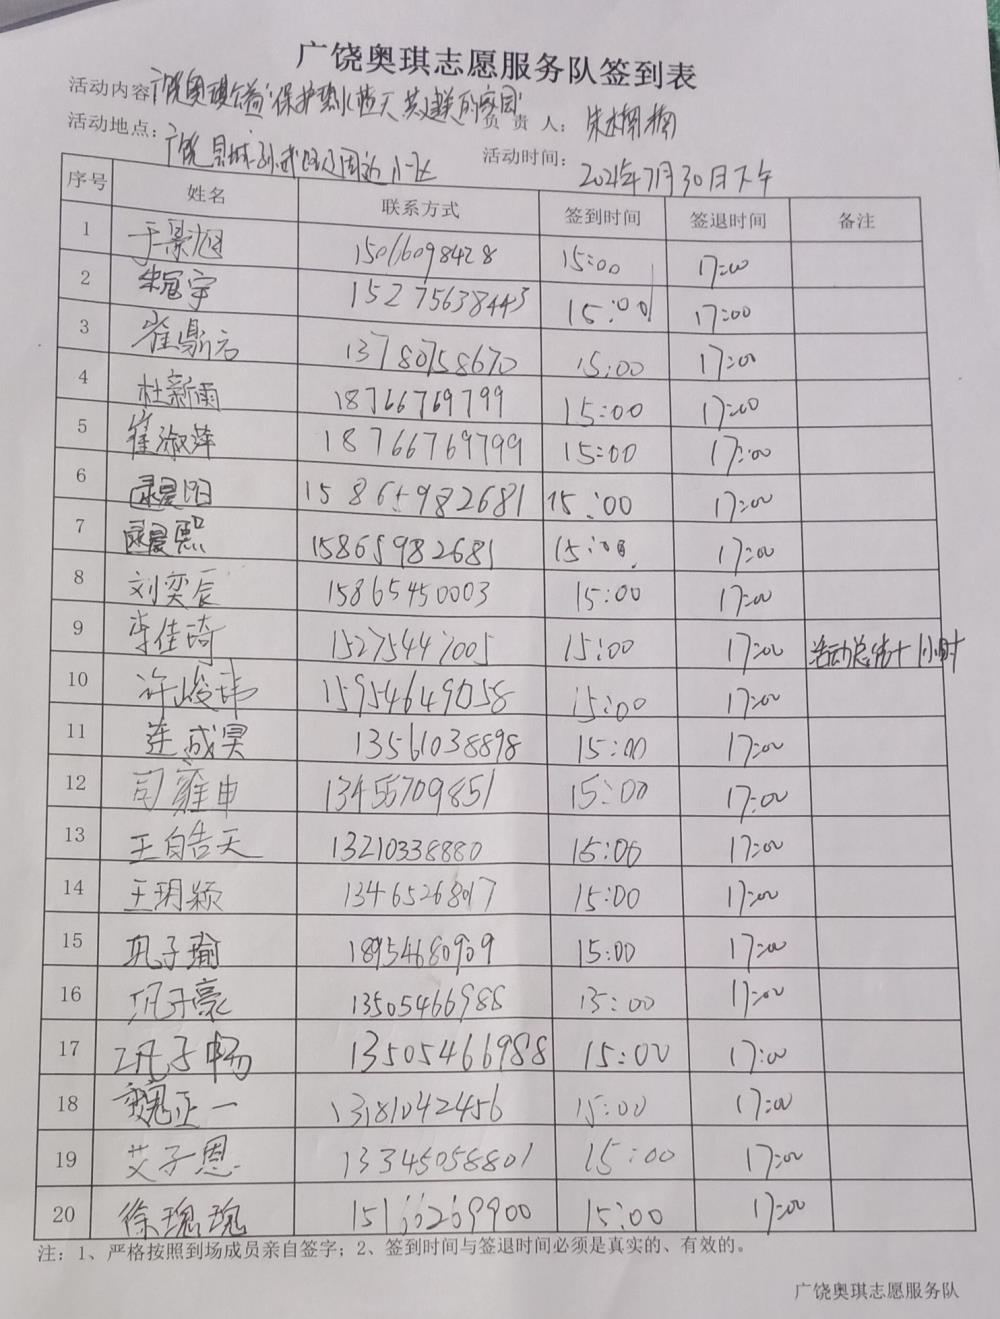 广饶奥琪志愿服务队签到表
活动内容 广饶奥琪公益"保护碧水蓝天 共建美的家园" 负责人: 朱木楠楠
活动地点: 广饶县城孙武路及周边小区 活动时间: 2021年7月30日下午
序号 姓名 联系方式 签到时间 签退时间 备注
1 于景旭 15066098428 15:00 17:00
2 朱冠宇 15275638443 15:00 17:00
3 崔鼎元 13780758670 15:00 17:00
4 杜新雨 18766769799 15:00 17:00
5 崔淑萍 18766769799 15:00 17:00
6 15865982681 15:00 17:00
7 15865982681 15:00 17:00
8 刘奕辰 15865450003 15:00 17:00
9 李佳琦 15275447005 15:00 17:00 活动总结+1小时
10 许峻玮 15954649058 15:00 17:00
11 连成昊 13561038898 15:00 17:00
12 司雅申 13455709851 15:00 17:00
13 王皓天 13210338880 15:00 17:00
14 王玥颖 13465268017 15:00 17:00
15 巩子瑜 18954680909 15:00 17:00
16 巩子豪 13505466988 15:00 17:00
17 巩子畅 13505466988 15:00 17:00
18 魏正一 13181042456 15:00 17:00
19 艾子恩 13345058801 15:00 17:00
20 徐瑰瑰 15166269900 15:00 17:00
注: 1、严格按照到场成员亲自签字; 2、签到时间与签退时间必须是真实的、有效的。
广饶奥琪志愿服务队